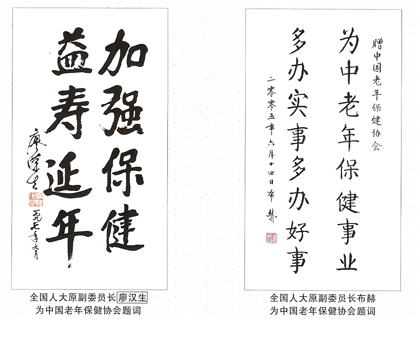 加强保健
益寿延年
廖汉生
一九九七年六月
全国人大原副委员长廖汉生
为中国老年保健协会题词
赠中国老年保健协会
为中老年保健事业
多办实事多办好事
二零零五年六月十四日布赫
全国人大原副委员长布赫
为中国老年保健协会题词